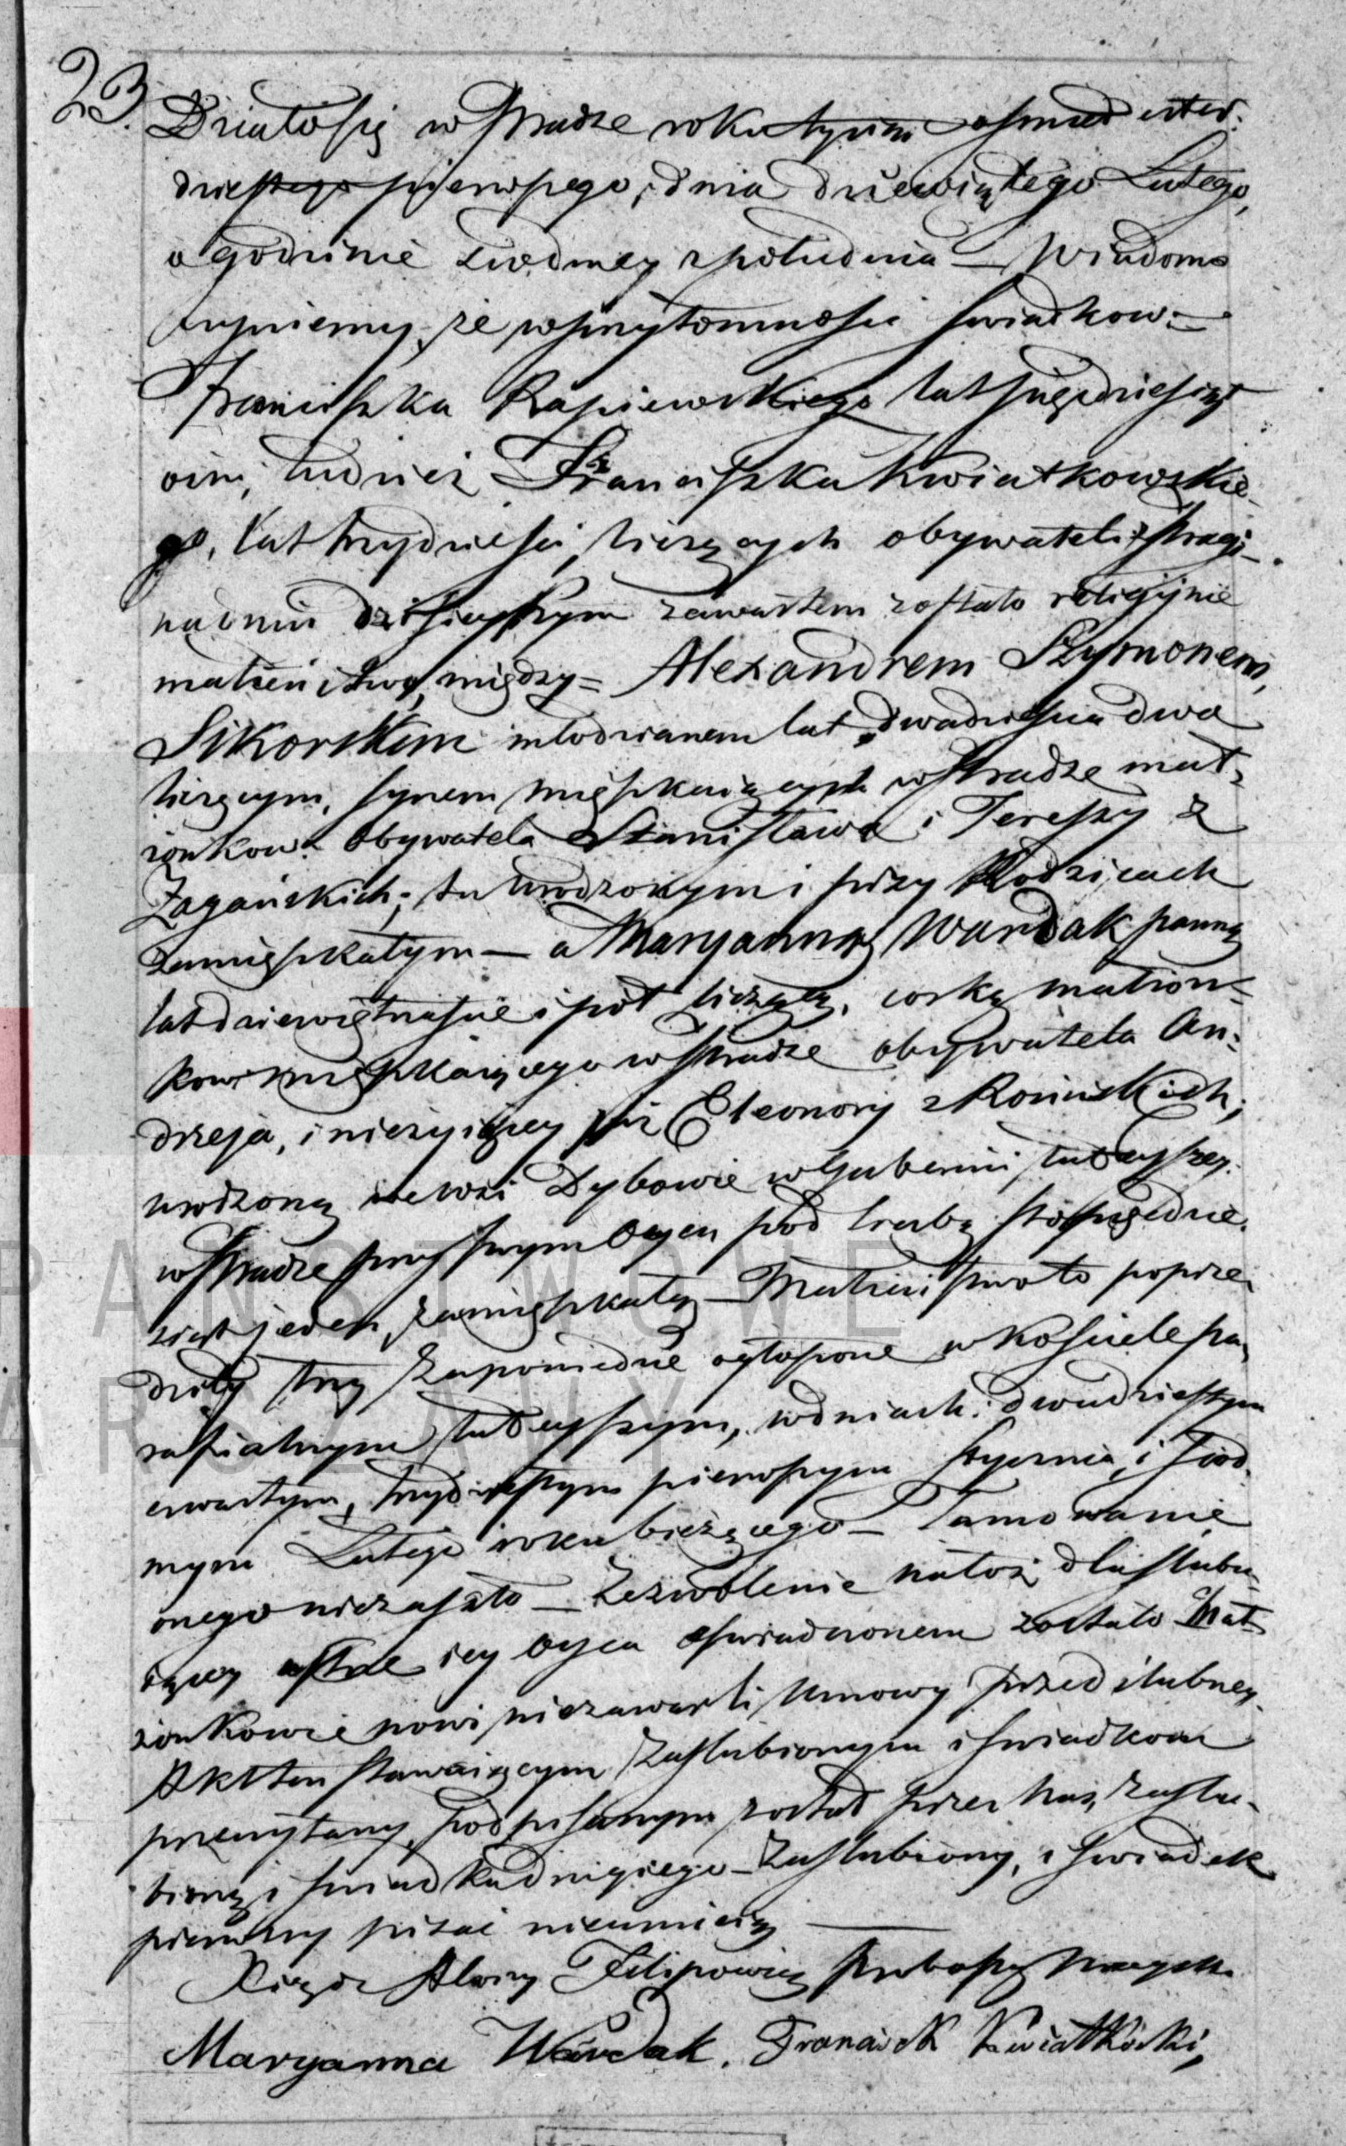 23.
Działo się w Pradze roku tysiąc ośmset czter:
dziestego pierwszego, dnia dziewiątego Lutego,
o godzinie siedmey z południa — Wiadomo
czyniemy, że w przytomności świadkow:
Franciszka Rapiewskiego lat pięćdziesiąt
ośm, tudzież Franciszka Kwiatkowskie-
go, lat trzydzieści, liczących obywateli z Pragi-
na dniu dzisieyszym zawartem zostało religijnie
małżeństwo, między = Alexandrem Szymonem,
Sikorskim młodzianem lat dwadzieścia dwa
liczącym, synem mięszkaiących w Pradze mał-
żonkow: obywatela Stanisława i Teressy z
Zagańskich; tu urodzonym i przy Rodzicach
zamięszkałym — a Maryanną Wardak panną
lat dziewiętnaście i pół liczącą, corką małżon-
kow: mięszkaiącego w Pradze obywatela An-
drzeja, i nieżyiącey już Eleonory z Rosińskich;
urodzoną we wsi Dybowie w Gubernii tuteyszey.
w Pradze przy swym Oycu pod liczbą sto pięćdzie-
siąt jeden, zamięszkałą — Małżeństwo to poprze-
dziły trzy Zapowiedzie ogłoszone w Kościele pa-
rafialnym tuteyszym, w dniach: dwudziestym
czwartym, trzydziestym pierwszym Stycznia, i siód-
mym Lutego roku bieżącego — Tamowanie
onego nie zaszło — Zezwolenie na toż dla slubu-
iącey ustnie iey Oyca oświadczonem zostało Mał-
żonkowie nowi nie zawarli Umowy przedślubney.
Akt ten stawaiącym Zaślubionym i świadkom
przeczytany, podpisanym został przez Nas, Zaślu-
bioną i świadka drugiego — Zaślubiony, i świadek
pierwszy pisać nieumieią
Xiądz Aloizy Filipowicz Proboszcz
Maryanna Wardak. Franciszek Kwiatkoski,
PAŃSTWOWE
WARSZAWY